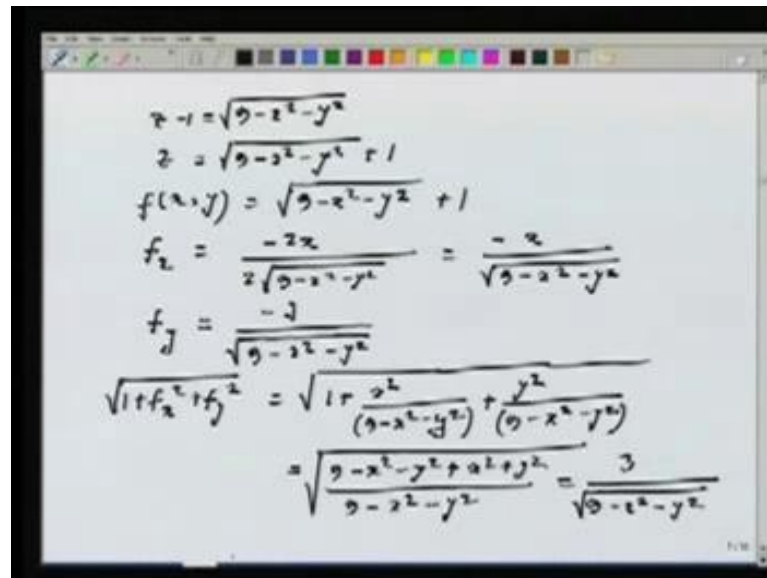 z-1 = √(9-x²-y²)
z = √(9-x²-y²) + 1
f(x,y) = √(9-x²-y²) + 1
f_x = -2x / 2√(9-x²-y²) = -x / √(9-x²-y²)
f_y = -y / √(9-x²-y²)
√(1+f_x²+f_y²) = √(1 + x²/(9-x²-y²) + y²/(9-x²-y²))
= √((9-x²-y²+x²+y²)/(9-x²-y²)) = 3/√(9-x²-y²)